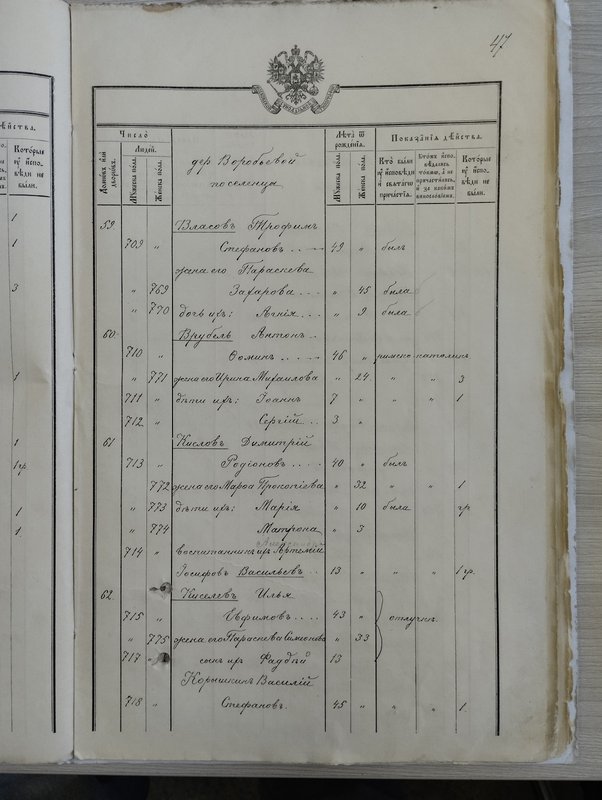 47
Число
Людей.
Домовъ или дворовъ.
Мужеска пола.
Женска пола.
дер Воробьевой
поселенца
Лѣта ѿ рожденія.
Мужеска пола.
Женска пола.
Показанія дѣйства.
Кто были у исповѣди и святаго причастія.
Которые у исповѣди не были.
59 Власовъ Трофимъ
709 " Стефановъ 49 " былъ
жена его Параскева
" 769 Захарова " 45 была
" 770 дочь ихъ: Агнія " 9 была
60 Врубель Антонъ
710 " Ѳоминъ 46 " римско католикъ
" 771 жена его Ирина Михаилова " 24 " " 3
711 " дѣти ихъ: Іоаннъ 7 " " " 1
712 " Сергій 3 "
61 Кисловъ Димитрій
713 " Родіоновъ 40 " былъ
772 жена его Марѳа Прокопіева " 32 " " 1
" 773 дѣти ихъ: Марія " 10 была гр.
" 774 Матрона " 3
714 " воспитанникъ ихъ Артемій
Іосифовъ Васильевъ 13 " " " 1 гр.
62 Киселевъ Илья
715 " Евфимовъ 43 " отлучк.
" 775 жена его Параскева Симеонова " 33
717 " сынъ ихъ Фаддѣй 13
Корышкинъ Василій
718 " Стефановъ 45 " " " 1
дѣйства.
Которые у исповѣди не были.
1
1
3
1
1
1 гр
1
1